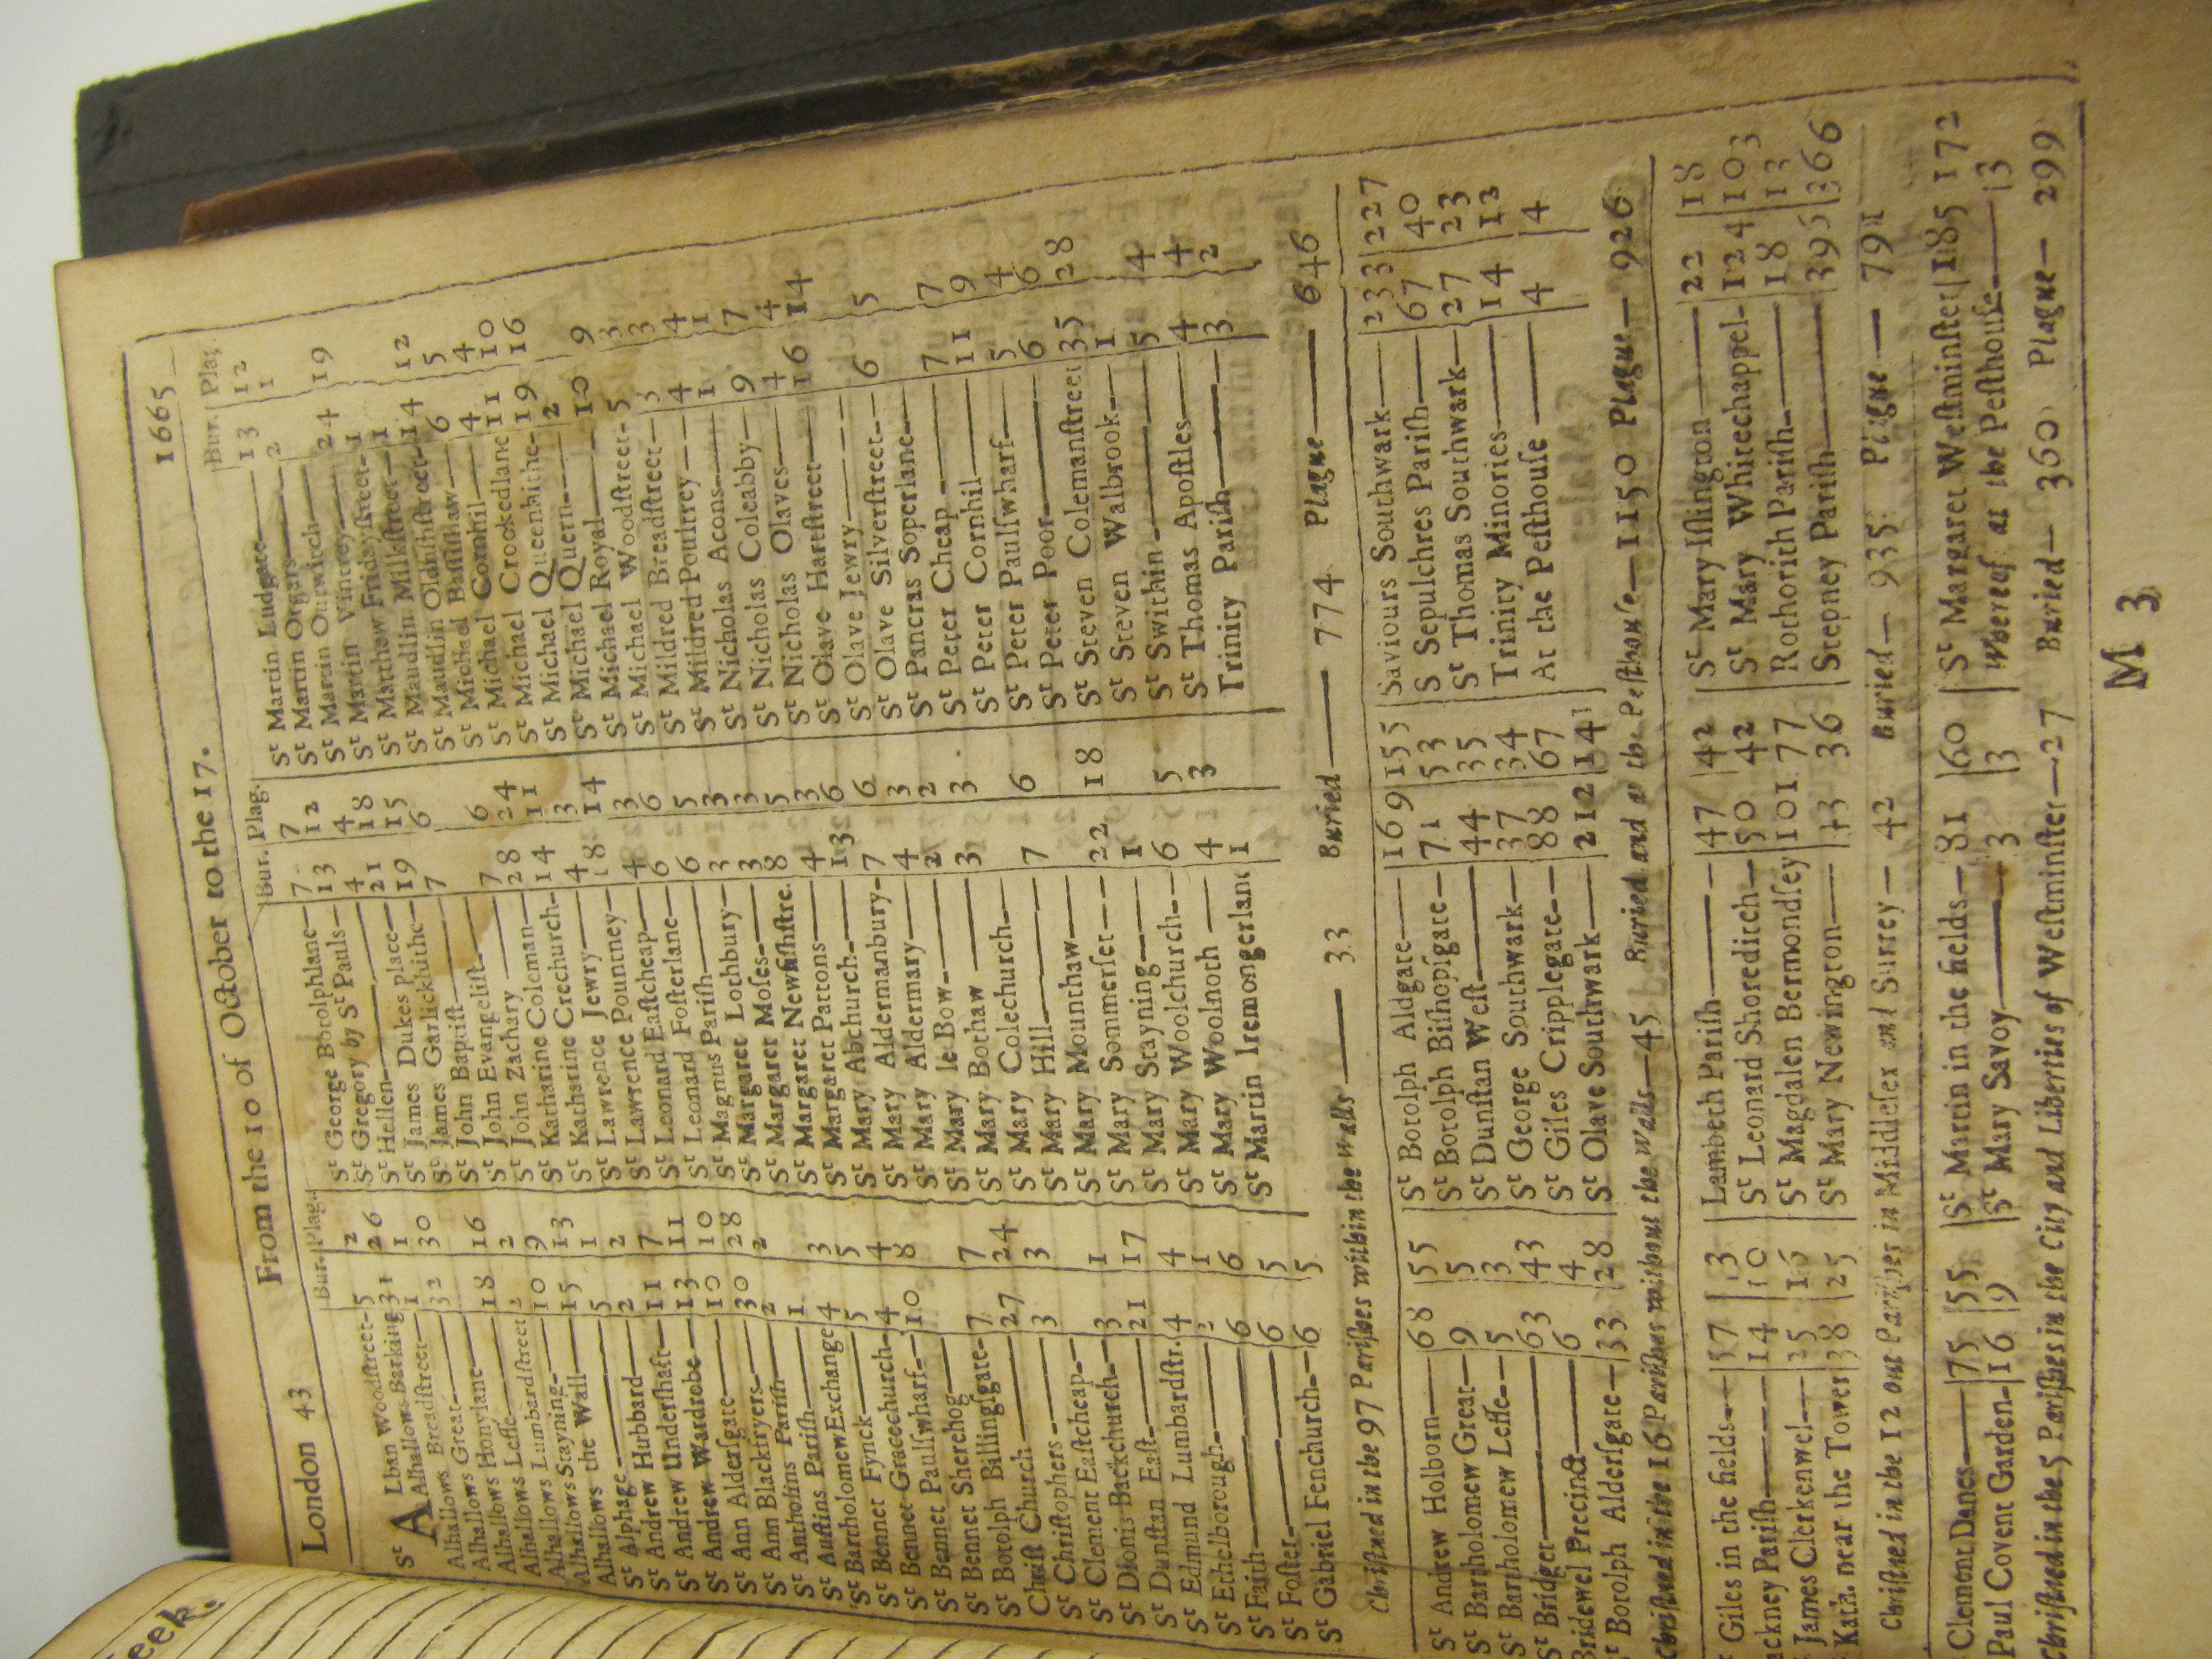 1665
From the 10 of October to the 17.
London 43
Bur. Plag.
St ALban Woodstreet 5 2
Alhallows Barking 31 26
Alhallows Breadstreet 1 1
Alhallows Great 32 30
Alhallows Honylane
Alhallows Lesse 18 16
Alhallows Lumbardstreet 2 2
Alhallows Stayning 10 9
Alhallows the Wall 15 13
St Alphage 5 1
St Andrew Hubbard 2 2
St Andrew Undershaft 11 7
St Andrew Wardrobe 13 11
St Ann Aldersgate 10 10
St Ann Blackfryers 30 28
St Antholins Parish 2 2
St Austins Parish 1
St Bartholomew Exchange 4 3
St Bennet Fynck 5 5
St Bennet Gracechurch 4 4
St Bennet Paulswharf 10 8
St Bennet Sherehog
St Botolph Billingsgate 7 7
Christ Church 27 24
St Christophers 3 3
St Clement Eastcheap
St Dionis Backchurch 3 1
St Dunstan East 21 17
St Edmund Lumbardstr. 4 4
St Ethelborough 2 1
St Faith 6 6
St Foster 6 5
St Gabriel Fenchurch 6 5
Bur. Plag.
St George Botolphlane 7 7
St Gregory by St Pauls 13 12
St Hellen 4 4
St James Dukes place 21 18
St James Garlickhithe 19 15
St John Baptist 7 6
St John Evangelist
St John Zachary 7 6
St Katharine Coleman 28 24
St Katharine Creechurch 14 11
St Lawrence Jewry 4 3
St Lawrence Pountney 18 14
St Leonard Eastcheap 4 3
St Leonard Fosterlane 6 6
St Magnus Parish 6 5
St Margaret Lothbury 3 3
St Margaret Moses 3 3
St Margaret Newfishstre. 8 5
St Margaret Pattons 4 3
St Mary Abchurch 13 6
St Mary Aldermanbury 7 6
St Mary Aldermary 4 3
St Mary le Bow 2 2
St Mary Bothaw 3 3
St Mary Colechurch
St Mary Hill 7 6
St Mary Mounthaw
St Mary Sommerset 22 18
St Mary Stayning 1
St Mary Woolchurch 6 5
St Mary Woolnoth 4 3
St Martin Iremongerlane 1
Bur. Plag.
St Martin Ludgate 13 12
St Martin Orgars 2 1
St Martin Outwitch
St Martin Vintrey 24 19
St Matthew Fridaystreet 1
St Maudlin Milkstreet 1
St Maudlin Oldfishstreet 14 12
St Michael Bassishaw 6 5
St Michael Cornhil 4 4
St Michael Crookedlane 11 10
St Michael Queenhithe 19 16
St Michael Quern 2
St Michael Royal 10 9
St Michael Woodstreet 5 3
St Mildred Breadstreet 3 3
St Mildred Poultrey 4 4
St Nicholas Acons 1 1
St Nicholas Coleabby 9 7
St Nicholas Olaves 4 4
St Olave Hartstreet 16 14
St Olave Jewry
St Olave Silverstreet 6 5
St Pancras Soperlane
St Peter Cheap 7 7
St Peter Cornhill 11 9
St Peter Paulswharf 5 4
St Peter Poor 6 6
St Steven Colemanstreet 35 28
St Steven Walbrook 1
St Swithin 5 4
St Thomas Apostles 4 4
Trinity Parish 3 2
Christned in the 97 Parishes within the Walls 33 Buried 774 Plague 646
St Andrew Holborn 68 55
St Bartholomew Great 9 5
St Bartholomew Lesse 5 3
St Bridget 63 43
Bridewel Precinct 6 4
St Botolph Aldersgate 33 28
St Botolph Aldgate 169 155
St Botolph Bishopsgate 71 53
St Dunstan West 44 35
St George Southwark 37 34
St Giles Cripplegate 88 67
St Olave Southwark 212 141
Saviours Southwark 233 227
S Sepulchres Parish 67 40
St Thomas Southwark 27 23
Trinity Minories 14 12
At the Pesthouse 4 4
Christned in the 16 Parishes without the Walls 45 Buried and at the Pesthouse 1150 Plague 926
Giles in the fields 57
ackney Parish 14 10
James Clerkenwel 25 16
Kath. near the Tower 38 25
Lambeth Parish 47 42
St Leonard Shoreditch 50 42
St Magdalen Bermondsey 101 77
St Mary Newington 43 36
St Mary Islington 22 18
St Mary Whitechappel 124 103
Rothorith Parish 18 13
Stepney Parish 395 366
Christned in the 12 out Parishes in Middlesex and Surrey 42 Buried 935 Plague 791
Clement Danes 75 55
Paul Covent Garden 16 9
St Martin in the fields 81 60
St Mary Savoy 3 3
St Margaret Westminster 185 172
Whereof at the Pesthouse 13
Christned in the 5 Parishes in the City and Liberties of Westminster 27 Buried 360 Plague 299
M 3
eek.